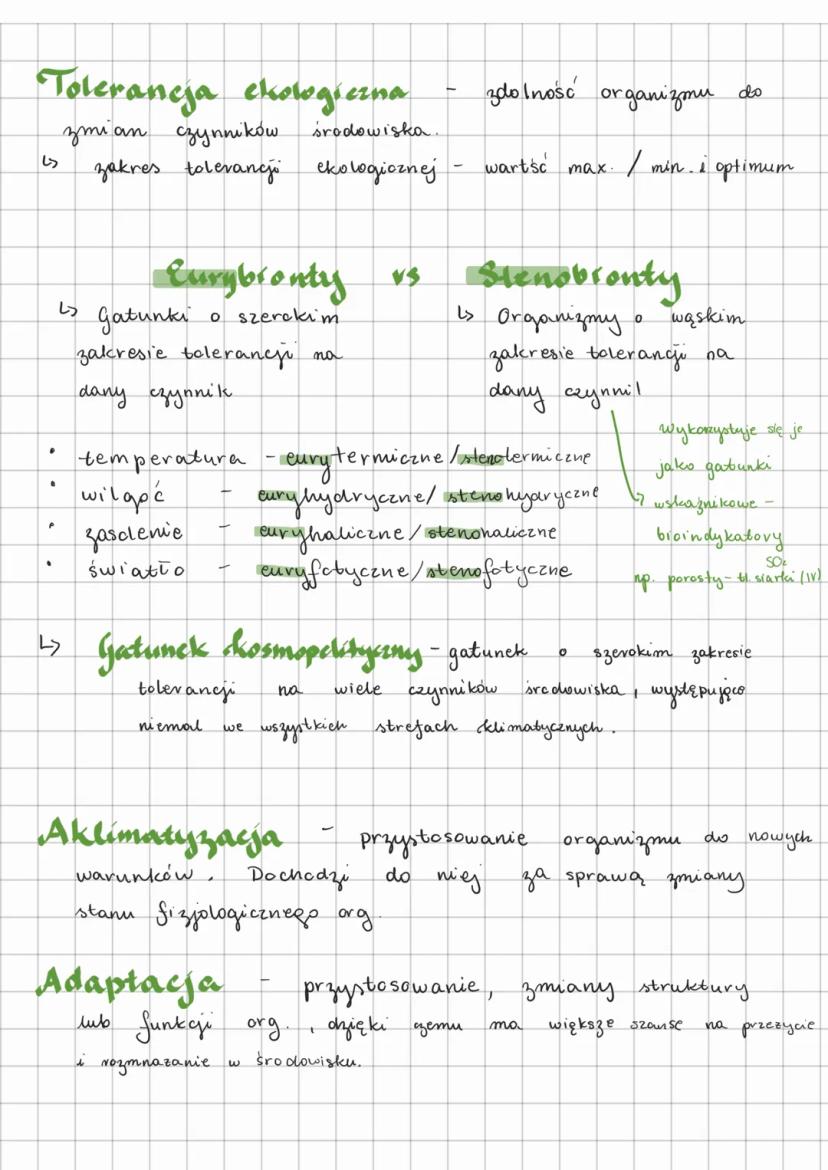 Tolerancja ekologiczna - zdolność organizmu do
zmian czynników środowiska.
↳ zakres tolerancji ekologicznej - wartść max. / min. i optimum
Eurybionty vs Stenobionty
↳ Gatunki o szerokim
zakresie tolerancji na
dany czynnik
↳ Organizmy o wąskim
zakresie tolerancji na
dany czynnil
Wykorzystuje się je
jako gatunki
wskaźnikowe -
bioindykatory
SO₂
np. porosty - tl. siarki (IV)
• temperatura - eurytermiczne / stenotermiczne
• wilgoć - euryhydryczne / stenohydryczne
• zasolenie - euryhaliczne / stenohaliczne
• światło - euryfotyczne / stenofotyczne
↳ Gatunek kosmopolityczny - gatunek o szerokim zakresie
tolerancji na wiele czynników środowiska, występujące
niemal we wszystkich strefach klimatycznych.
Aklimatyzacja - przystosowanie organizmu do nowych
warunków. Dochodzi do niej za sprawą zmiany
stanu fizjologicznego org.
Adaptacja - przystosowanie, zmiany struktury
lub funkcji org., dzięki czemu ma większe szanse na przeżycie
i rozmnażanie w środowisku.